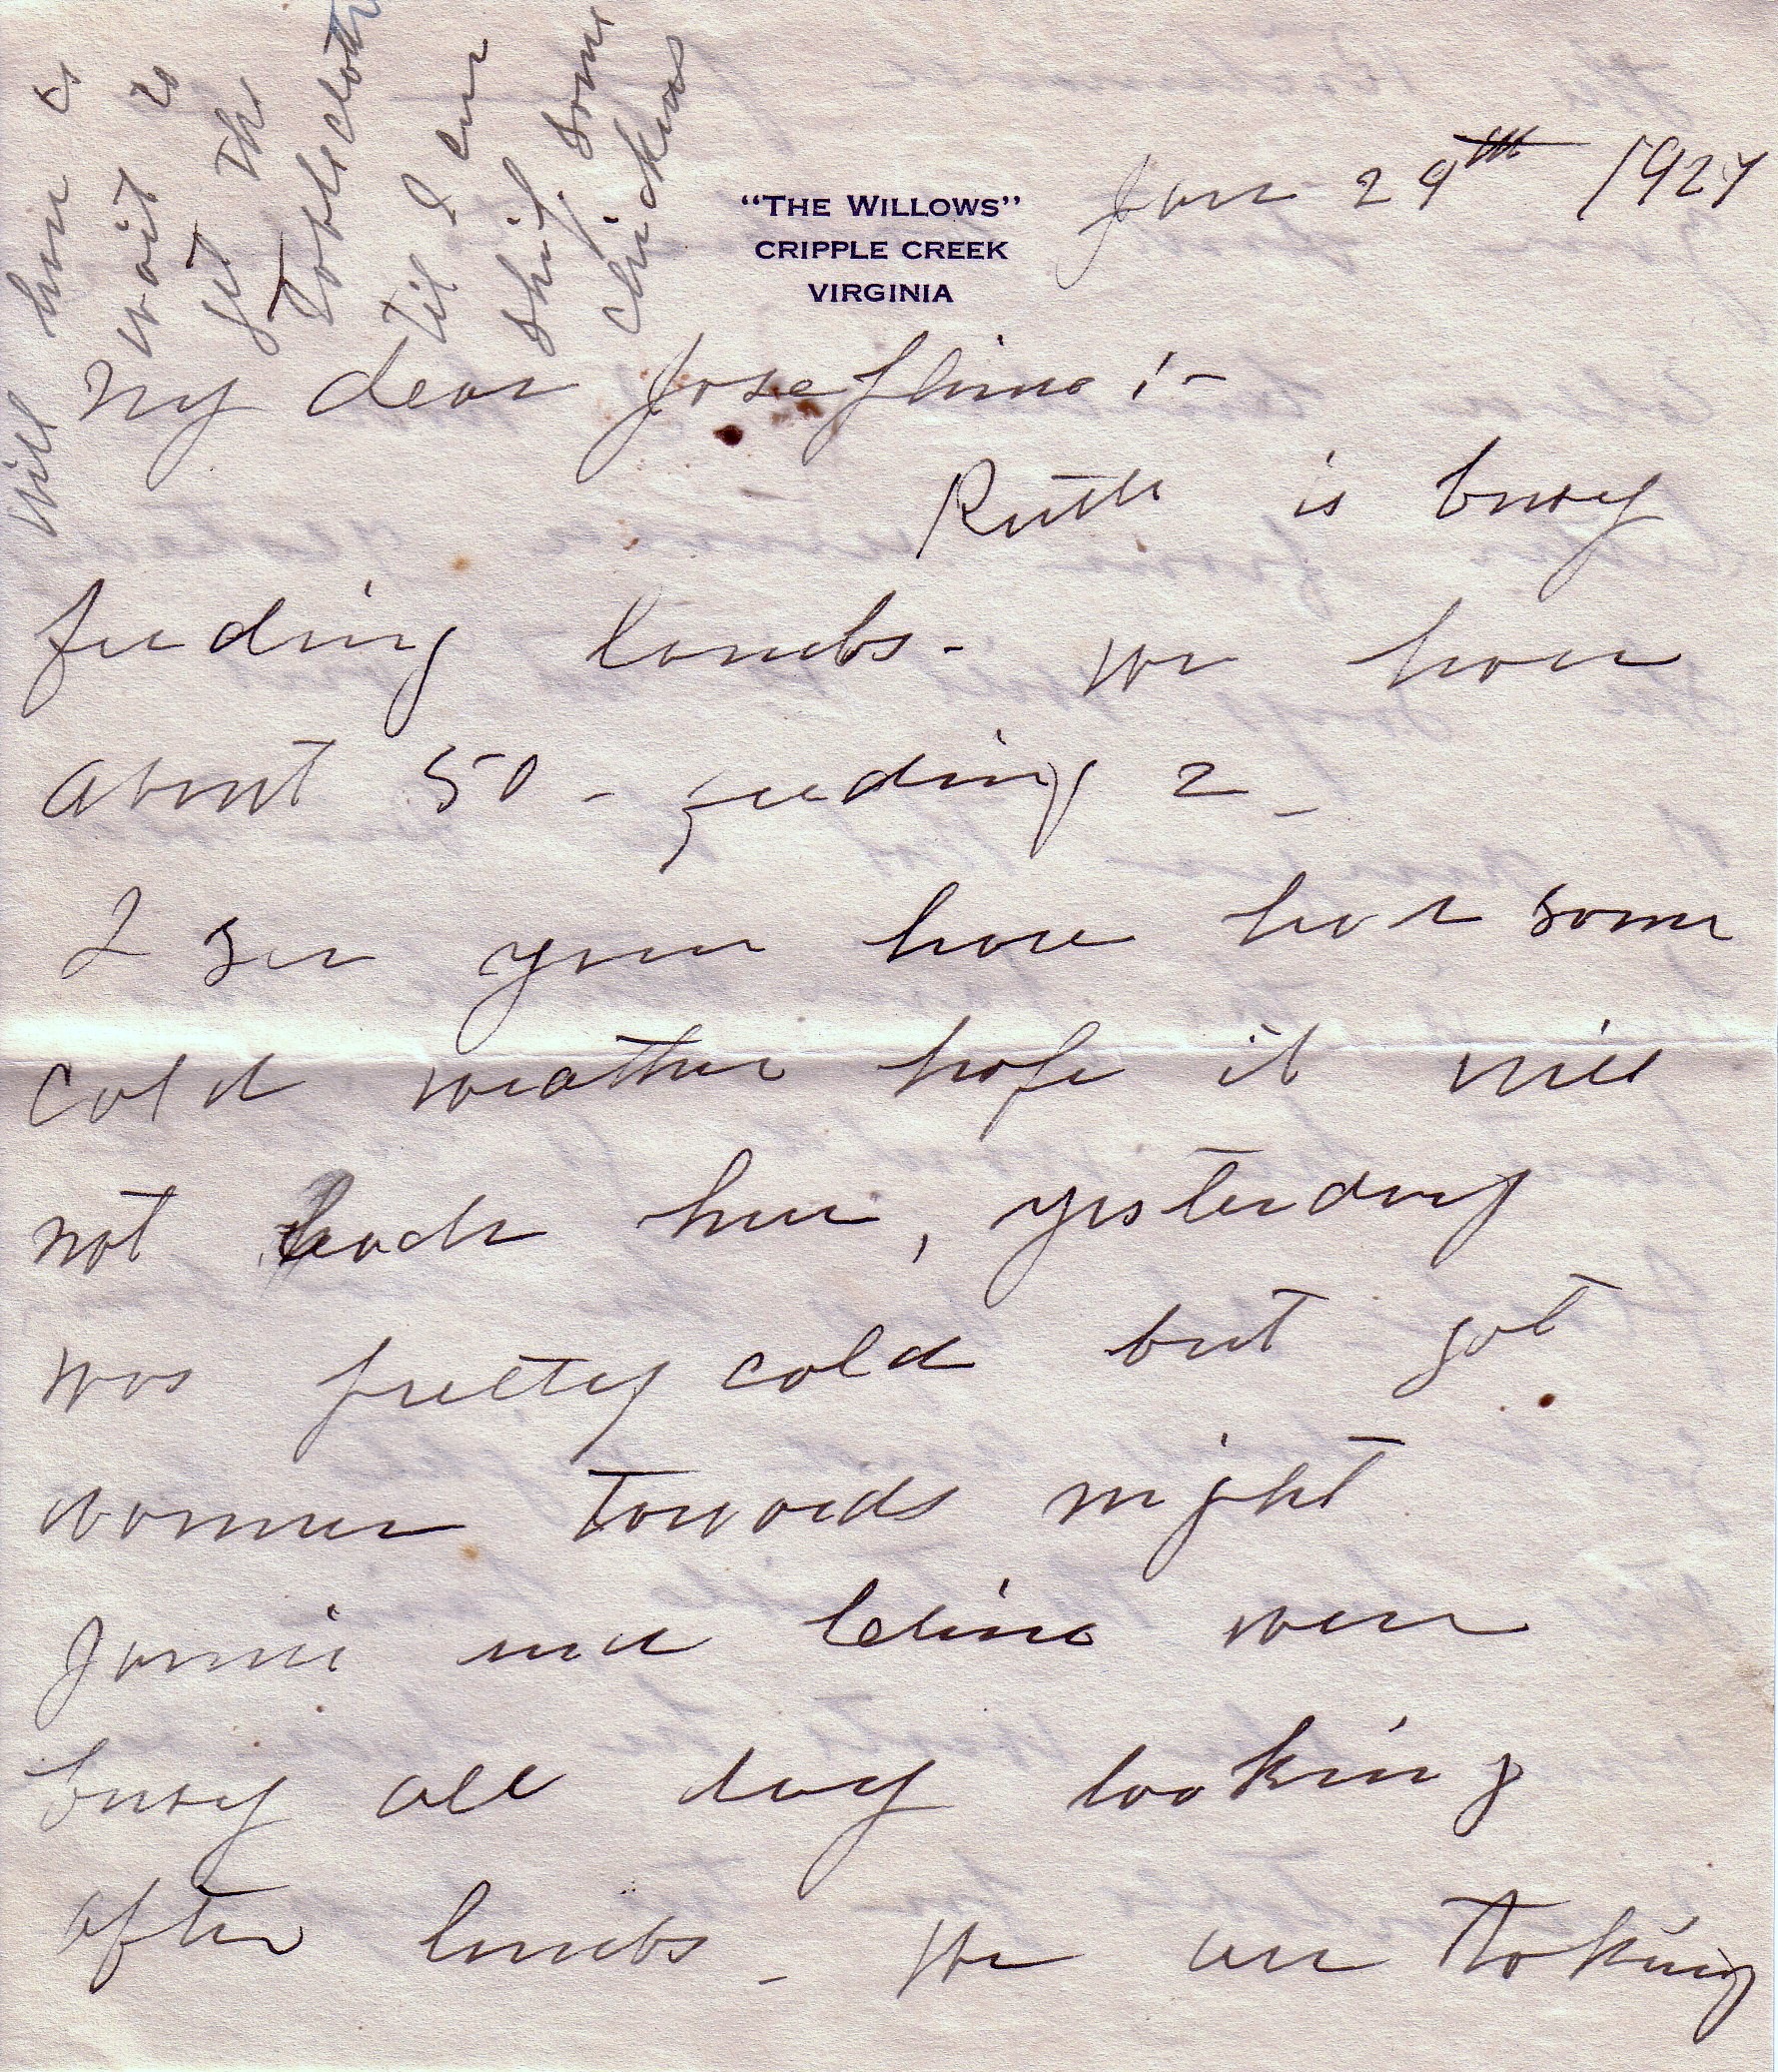 Will have to
wait to
get the
Tablecloth
til I can
ship some
chickens
"THE WILLOWS"
CRIPPLE CREEK
VIRGINIA
Jan 29th 1927
My dear Josephine:-
Ruth is busy
feeding lambs- We have
about 50- feeding 2-
I see you have had some
cold weather hope it will
not here, yesterday
was pretty cold but got
warmer towards night
and were
busy all day looking
after lambs- We are taking